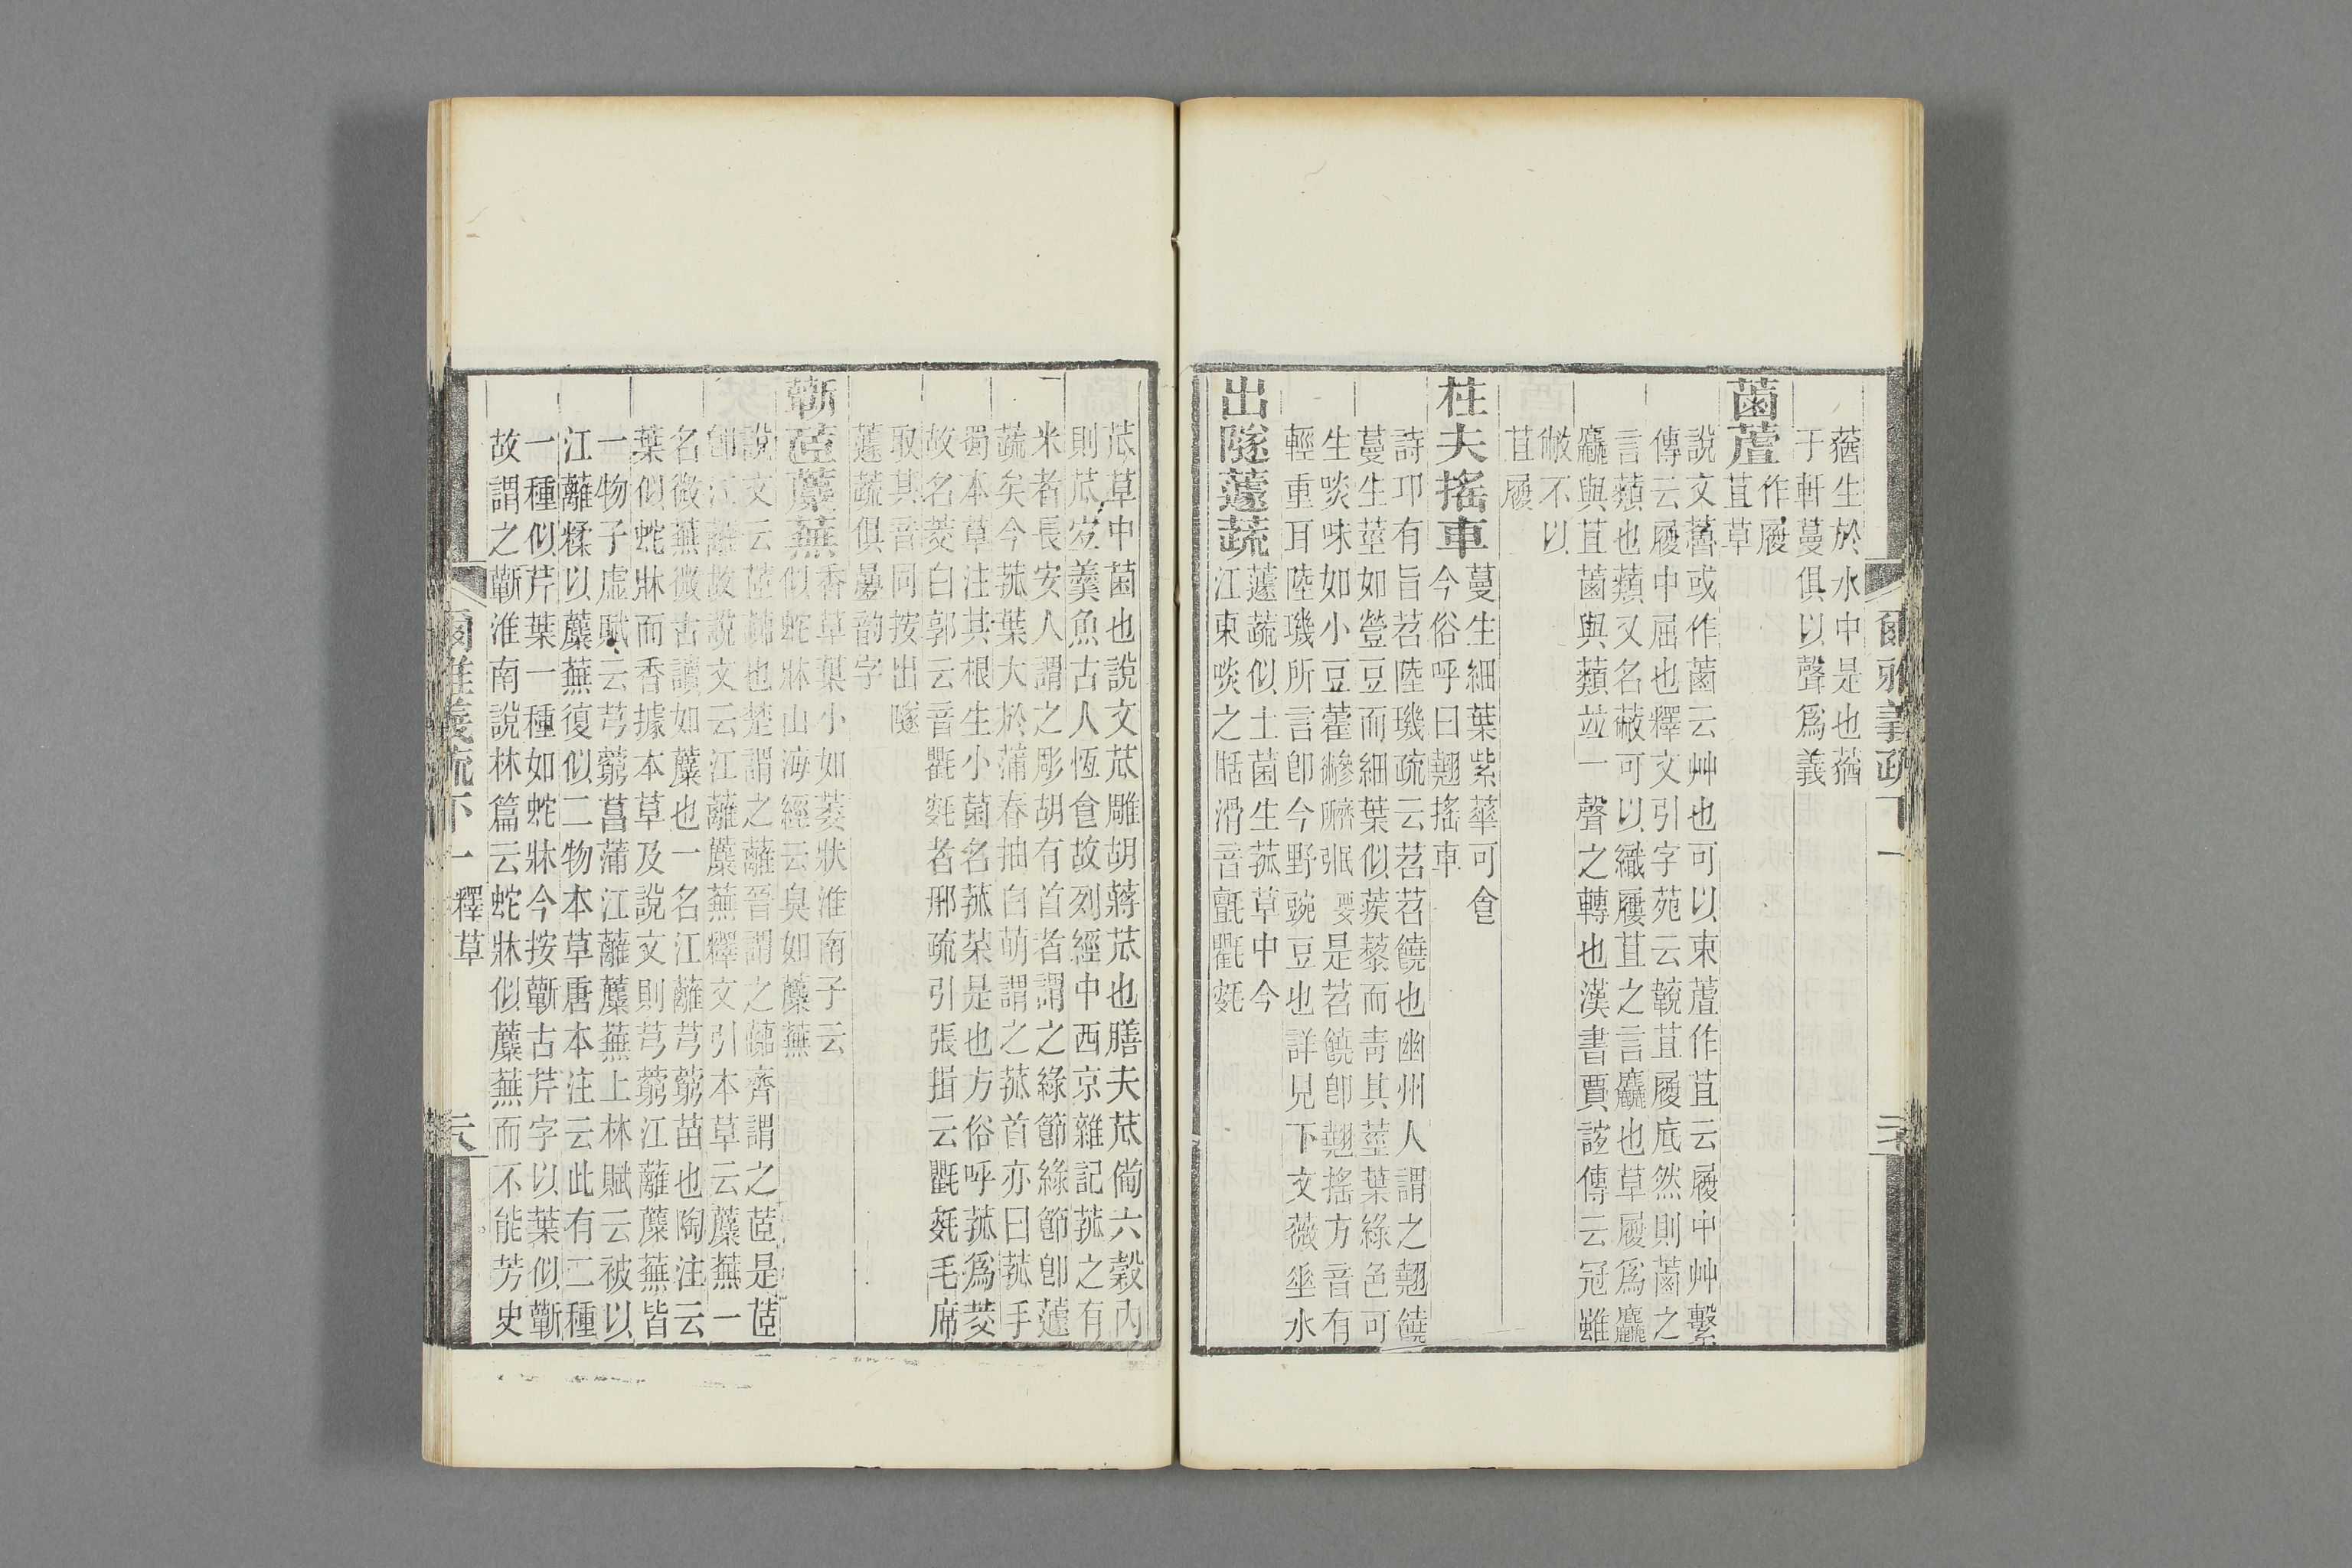 蕕生於水中是也蕕
于軒蔓俱以聲爲義
菌蘆
作履
苴草
說文蓾或作菌云艸也可以束蘆作苴云履中艸繫
傳云履中屈也釋文引字苑云䩕苴履底然則菌之
言藾也藾又名蔽可以織屨苴之言麤也草履爲麤
麤與苴菌與藾竝一聲之轉也漢書賈誼傳云冠雖
敝不以
苴履
柱夫搖車
蔓生細葉紫華可㑹
今俗呼曰翹搖車
詩邛有旨苕陸璣疏云苕苕饒也幽州人謂之翹饒
蔓生莖如營豆而細葉似蒺藜而靑其莖葉綠色可
生啖味如小豆藿是苕饒卽翹搖方音有
輕重耳陸璣所言卽今野豌豆也詳見下文薇垂水
出隧蘧蔬
蘧蔬似土菌生菰草中今
江東啖之甛滑音氈氍㲣
苽草中菌也說文苽雕胡蔣苽也膳夫苽備六穀內
則苽宜羹魚古人恆㑹故列經中西京雜記菰之有
米者長安人謂之彫胡有首者謂之綠節綠節卽蘧
蔬矣今菰葉大於蒲春抽白萌謂之菰首亦曰菰手
蜀本草注其根生小菌名菰菜是也方俗呼菰爲茭
故名茭白郭云音氍㲣者邢疏引張揖云氍㲣毛席
取其音同按出隧
蘧蔬俱曡韵字
蘄茝蘪蕪
香草葉小如萎狀淮南子云
似蛇牀山海經云臭如蘪蕪
說文云茝虈也楚謂之蘺晉謂之虈齊謂之茝是茝
卽江蘺故說文云江蘺蘪蕪釋文引本草云蘪蕪一
名微蕪微古讀如蘪也一名江蘺芎藭苗也陶注云
葉似蛇牀而香據本草及說文則芎藭江蘺蘪蕪皆
一物子虛賦云芎藭菖蒲江蘺蘪蕪上林賦云被以
江蘺糅以蘪蕪復似二物本草唐本注云此有二種
一種似芹葉一種如蛇牀今按蘄古芹字以葉似蘄
故謂之蘄淮南說林篇云蛇牀似蘪蕪而不能芳史
爾雅義疏下一 釋草